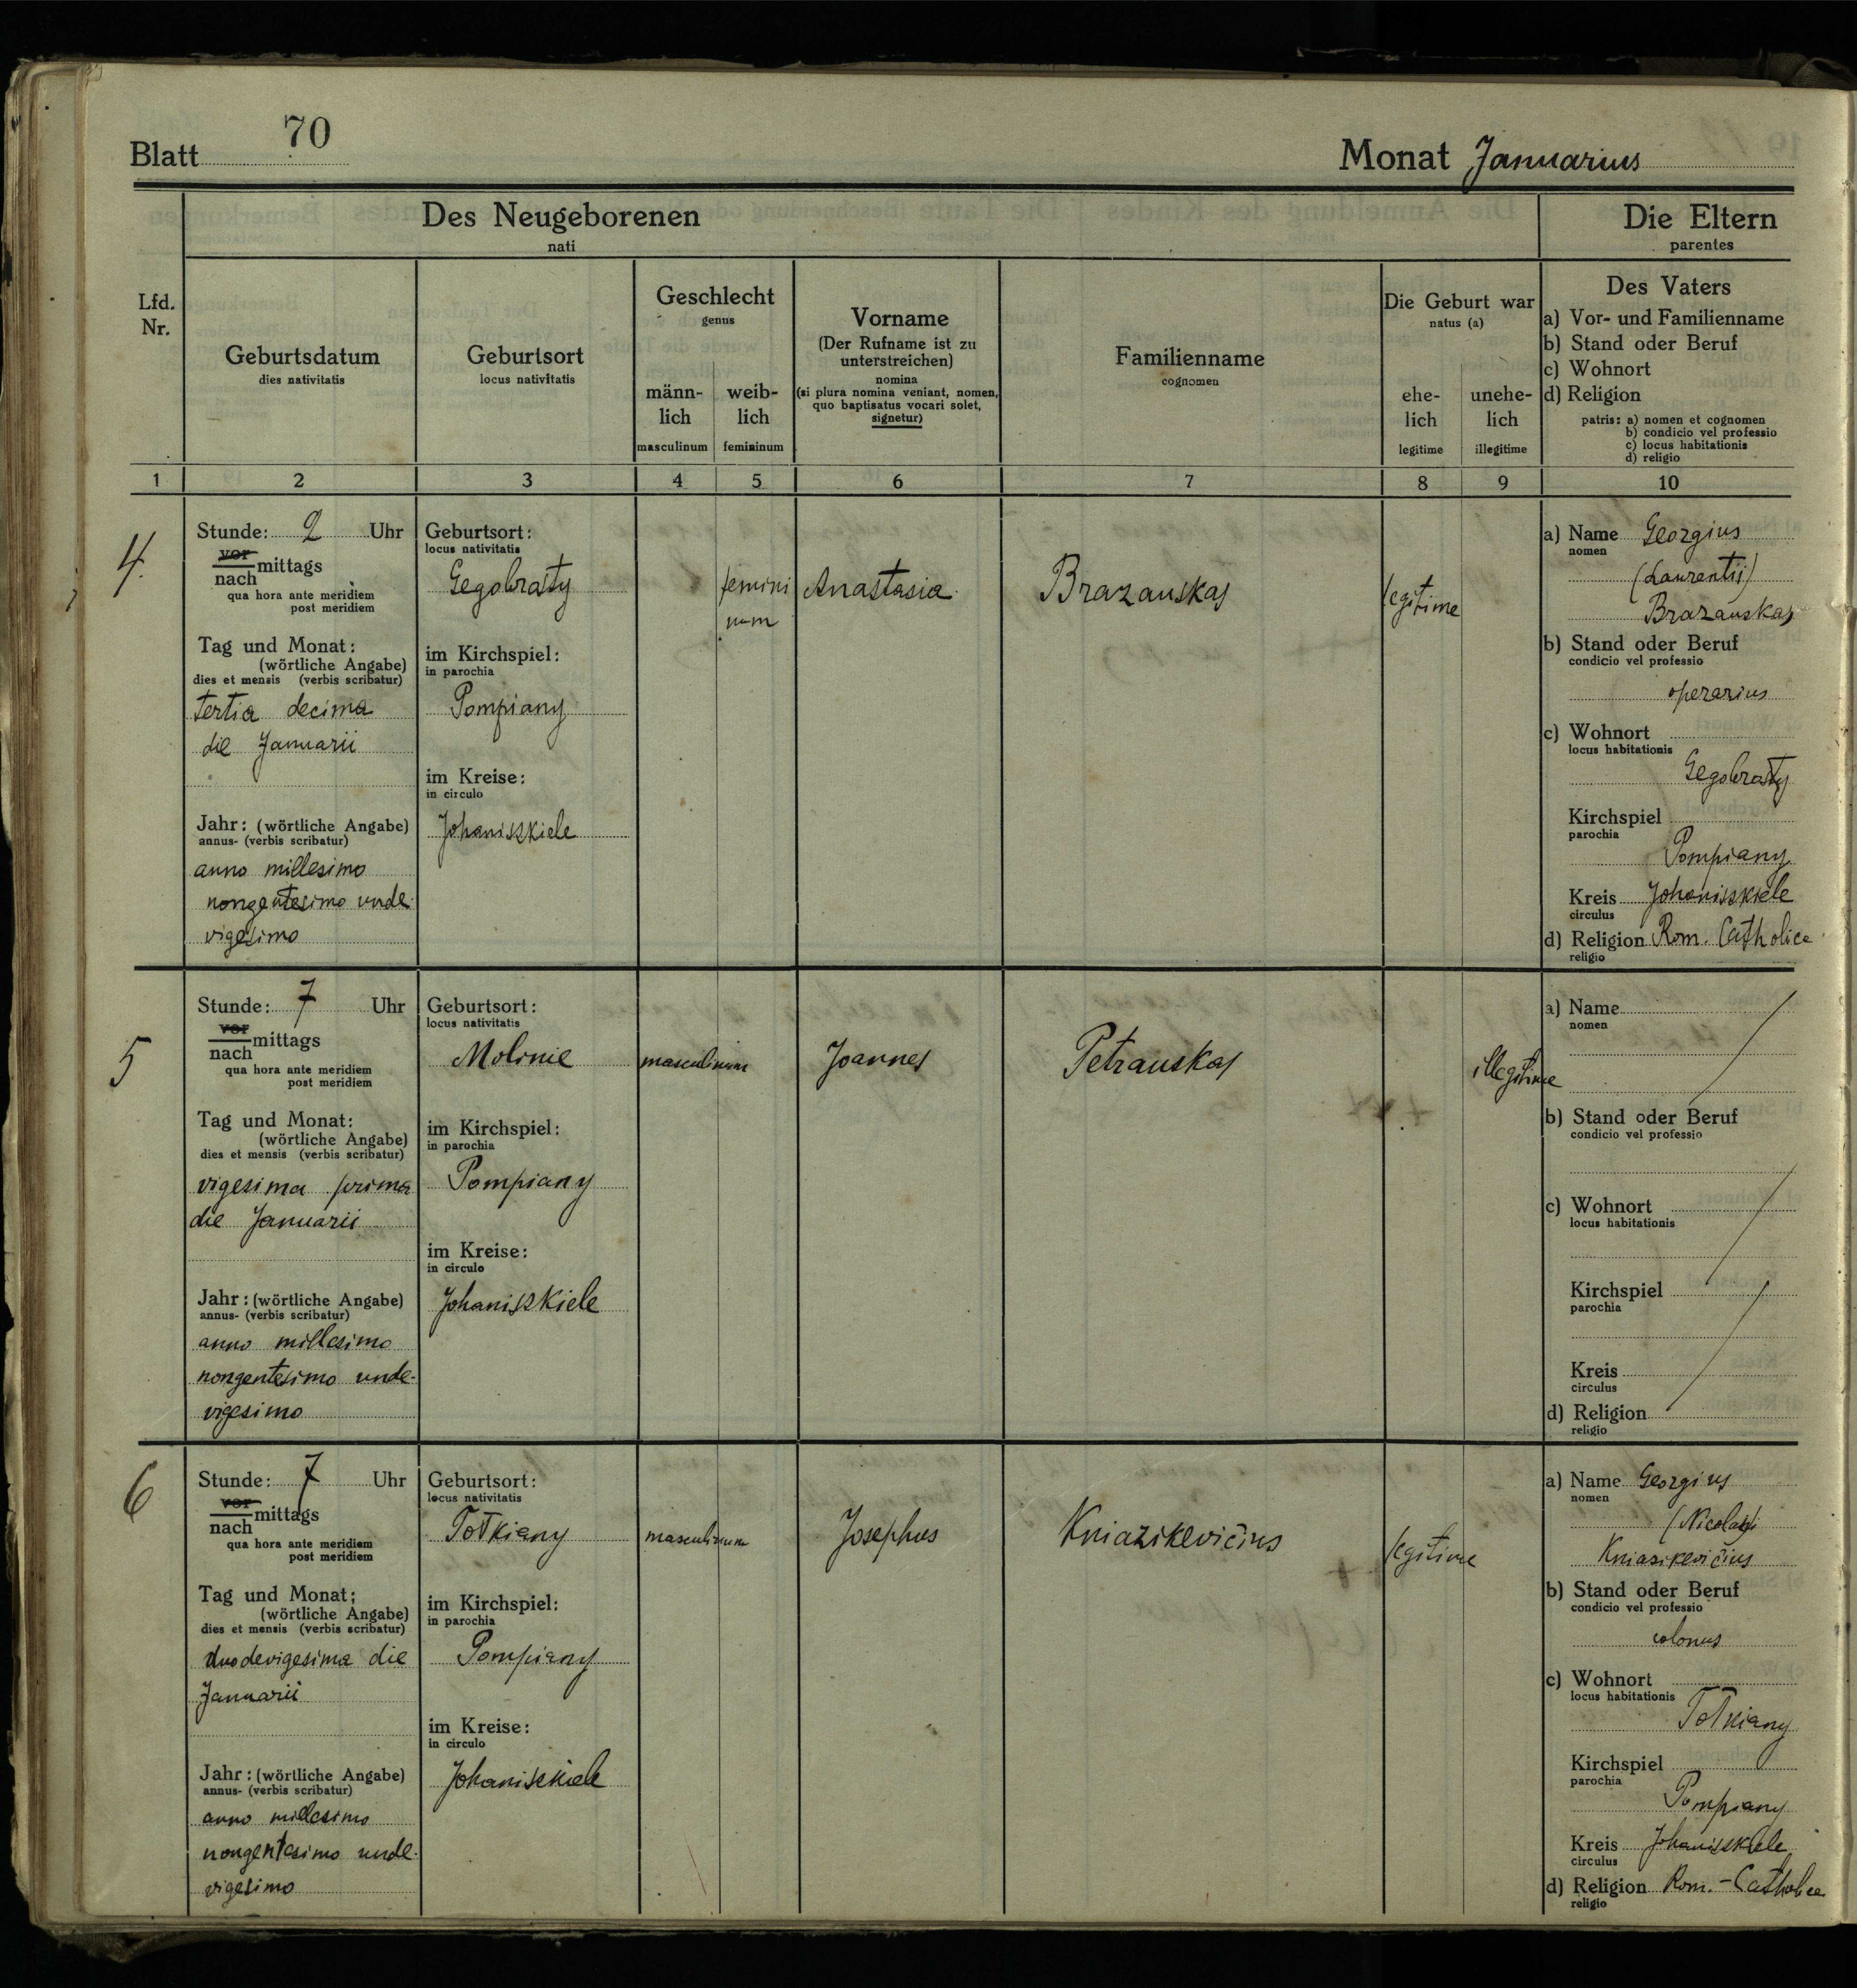 Blatt 70
Monat Januarius
Des Neugeborenen
nati
Die Eltern
parentes
Lfd.
Nr.
Geburtsdatum
dies nativitatis
Geburtsort
locus nativitatis
Geschlecht
genus
männ-
lich
masculinum
weib-
lich
femininum
Vorname
(Der Rufname ist zu
unterstreichen)
nomina
(si plura nomina veniant, nomen,
quo baptisatus vocari solet,
signetur)
Familienname
cognomen
Die Geburt war
natus (a)
ehe-
lich
legitime
unehe-
lich
illegitime
Des Vaters
a) Vor- und Familienname
b) Stand oder Beruf
c) Wohnort
d) Religion
patris: a) nomen et cognomen
b) condicio vel professio
c) locus habitationis
d) religio
1 2 3 4 5 6 7 8 9 10
4.
Stunde: 2 Uhr
vor
nach mittags
qua hora ante meridiem
post meridiem
Tag und Monat:
(wörtliche Angabe)
dies et mensis (verbis scribatur)
tertia decima
die Januarii
Jahr: (wörtliche Angabe)
annus- (verbis scribatur)
anno millesimo
nongentesimo unde-
vigesimo
Geburtsort:
locus nativitatis
Gegobrasty
im Kirchspiel:
in parochia
Pompiany
im Kreise:
in circulo
Johaniszkiele
femini
num
Anastasia
Brazauskas
legitime
a) Name Georgius
nomen
(Laurentii)
Brazauskas
b) Stand oder Beruf
condicio vel professio
operarius
c) Wohnort
locus habitationis
Gegobrasty
Kirchspiel
parochia
Pompiany
Kreis Johaniszkiele
circulus
d) Religion Rom. Catholica
religio
5
Stunde: 7 Uhr
vor
nach mittags
qua hora ante meridiem
post meridiem
Tag und Monat:
(wörtliche Angabe)
dies et mensis (verbis scribatur)
vigesima prima
die Januarii
Jahr: (wörtliche Angabe)
annus- (verbis scribatur)
anno millesimo
nongentesimo unde-
vigesimo
Geburtsort:
locus nativitatis
Molinie
im Kirchspiel:
in parochia
Pompiany
im Kreise:
in circulo
Johaniszkiele
masculinum
Joannes
Petrauskas
illegitime
a) Name
nomen
b) Stand oder Beruf
condicio vel professio
c) Wohnort
locus habitationis
Kirchspiel
parochia
Kreis
circulus
d) Religion
religio
6
Stunde: 7 Uhr
vor
nach mittags
qua hora ante meridiem
post meridiem
Tag und Monat;
(wörtliche Angabe)
dies et mensis (verbis scribatur)
duodevigesima die
Januarii
Jahr: (wörtliche Angabe)
annus- (verbis scribatur)
anno millesimo
nongentesimo unde-
vigesimo
Geburtsort:
locus nativitatis
Totkiany
im Kirchspiel:
in parochia
Pompiany
im Kreise:
in circulo
Johaniszkiele
masculinum
Josephus
Kniazikevičius
legitime
a) Name Georgius
nomen
(Nicolaji
Kniazikevičius
b) Stand oder Beruf
condicio vel professio
colonus
c) Wohnort
locus habitationis
Totkiany
Kirchspiel
parochia
Pompiany
Kreis Johaniszkiele
circulus
d) Religion Rom.-Catholica
religio